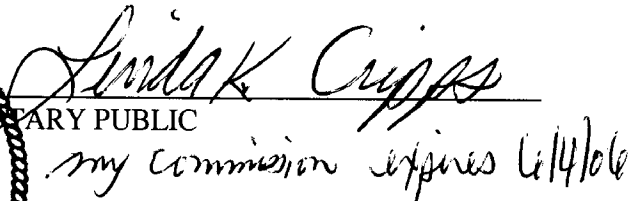 Linda K. Cripps
TARY PUBLIC
my commission expires 6/4/06